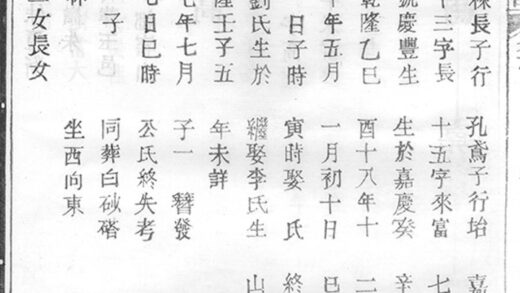 長子行
十三字長
號慶豐生
乾隆乙巳
年五月
日子時
劉氏生於
隆壬子五
七年七月
日巳時
子
女長女
孔鳶子行坮
十五字來富
生於嘉慶癸
酉十八年十
一月初十日
寅時娶 氏
繼娶李氏生
年未詳
子一 簪發
公氏終失考
同葬白砂碦
坐西向東
嘉
七
辛
二
巳
終
山